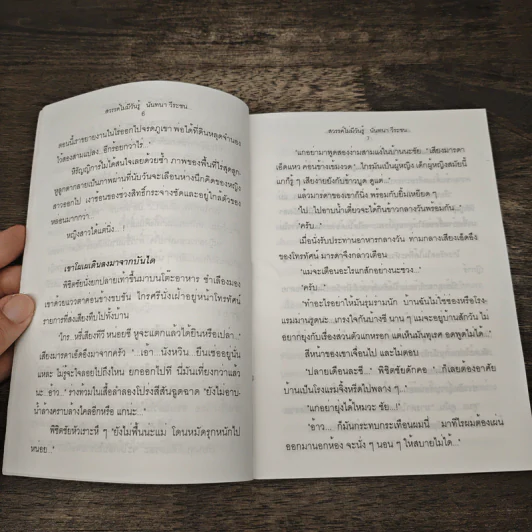 สวรรค์ไม่มีวันรู้ นันทนา วีระชน
6
ตอนนี้เราขยายงานในไร่ออกไปจรดภูเขา พ่อได้ที่ดินหลุดจำนอง
ไว้สองสามแปลง...อีกร้อยกว่าไร่..."
หิรัญญิการ์ไม่ได้สนใจเลยด้วยซ้ำ ภาพของพื้นที่ไร่สุดลูก-
หูลูกตากลายเป็นภาพม่านที่นับวันจะเลือนห่างนึกคิดของหญิง
สาวออกไป เงาซ้อนของช่วงสิทธิ์กระจ่างชัดและอยู่ใกล้ตัวของ
หล่อนมากกว่า
หญิงสาวได้แต่นิ่ง...!
เขาโผเผเดินลงมาจากบันได
พิชิตชัยนั่งยกปลายเท้าขึ้นมาบนโต๊ะอาหาร ชำเลืองมอง
เขาด้วยแววตาค่อนข้างขบขัน ไกรศรีนั่งเฝ้าอยู่หน้าโทรทัศน์
รายการที่ส่งเสียงทีบไปทั้งบ้าน
"ไกร...หรี่เสียงทีวี หน่อยซี หูจะแตกแล้วได้ยินหรือเปล่า..."
เสียงมารดาเอ็ดอึงมาจากครัว "...เอ้า...นังหวิน...ยืนเซ่ออยู่นั่น
แหละ ไม่รู้จะลอยไปถึงไหน ยกออกไปที นี่มันเที่ยงกว่าแล้ว
นะ..อ้าว..." ร่างท้วมในเสื้อลำลองโปร่งสีสันฉูดฉาด "ยังไม่อาบ-
น้ำล้างคราบล้างไคลอีกหรือ แกนะ..."
พิชิตชัยหัวเราะหึ ๆ "ยังไม่ฟื้นน่ะแม่ โดนหมัดรุกหนักไป
หน่อย..."
สวรรค์ไม่มีวันรู้ นันทนา วีระชน
7
"แกอย่ามาพูดสองง่ามสามแง่ในบ้านนะชัย..." เสียงมารดา
เอ็ดแหว ค่อนข้างเข้มงวด "...ใครมันเป็นผู้หญิง เด็กผู้หญิงสมัยนี้
แกก็รู้ ๆ เสียงายยังกับข้าวบูด ดูแต่..."
แล้วมารดาของเขาก็นิ่ง พร้อมกับยิ้มเหยียด ๆ
"ไป...ไปอาบน้ำเดี๋ยวจะได้กินข้าวกลางวันพร้อมกัน..."
"ครับ..."
เมื่อนั่งรับประทานอาหารกลางวัน ท่ามกลางเสียงเอ็ดอึง
ของโทรทัศน์ มารดาจึงกล่าวเตือน
"แม่จะเตือนอะไรแกสักอย่างนะชวง..."
"ครับ..."
"ทำอะไรอย่าให้มันรุ่มร่ามนัก บ้านฉันไม่ใช่ซ่องหรือโรง-
แรมม่านรูดน่ะ...เกรงใจกันบ้างซี นาน ๆ แม่จะอยู่บ้านสักวัน ไม่
อยากยุ่งกับเรื่องส่วนตัวแกหรอก แต่เห็นมันทุเรศ อดพูดไม่ได้..."
สีหน้าของเขาเจื่อนไป และไม่ตอบ
"ปลายเดือนละซี..." พิชิตชัยดักคอ "...ก็เลยต้องอาศัย
บ้านเป็นโรงแรมจิ้งหรีดไปพลาง ๆ..."
"แกอย่ายุ่งได้ไหมวะ ชัย...!"
"อ้าว...ก็มันกระทบกระเทือนผมนี่...มาทีไรผมต้องเผ่น
ออกมานอกห้อง จะนั่ง ๆ นอน ๆ ให้สบายไม่ได้..."